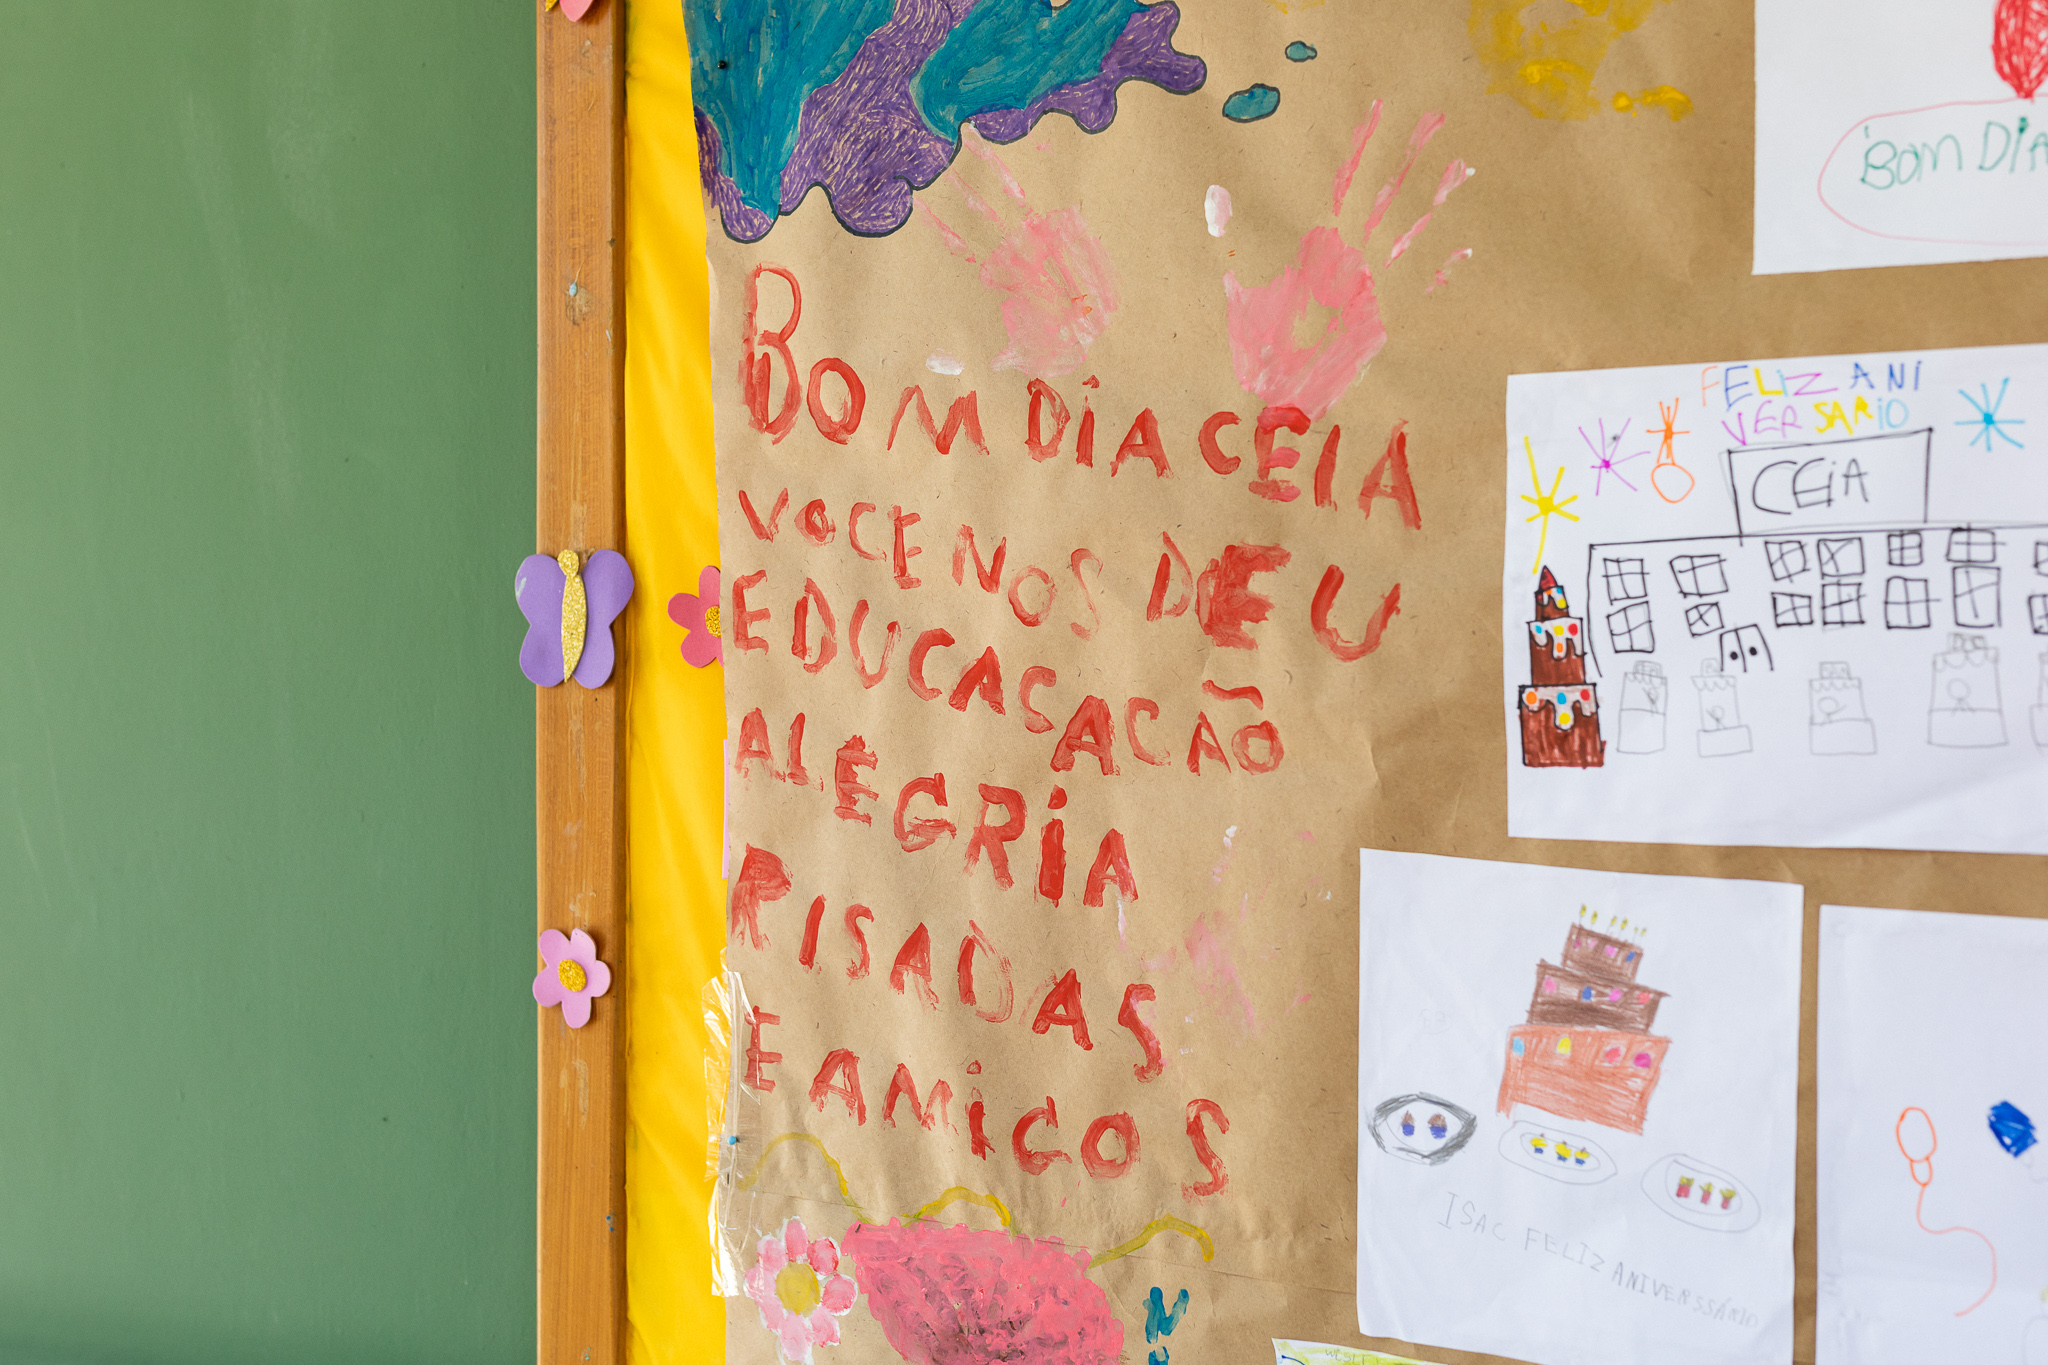 BOM DIA CEIA
VOCE NOS DEU
EDUCACACÃO
ALEGRIA
RISADAS
E AMIGOS
N
BOM DIA
FELIZ ANI
VERSARIO
CEIA
ISAC FELIZ ANIVERSSÁRIO